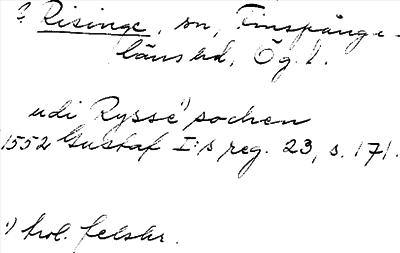 ? Risinge, sn, Finspånga
läns hd, Ög. l.
udi Rysse¹⁾ sochen
1552 Gustaf I:s reg. 23, s. 171.
¹⁾ trol. felskr.